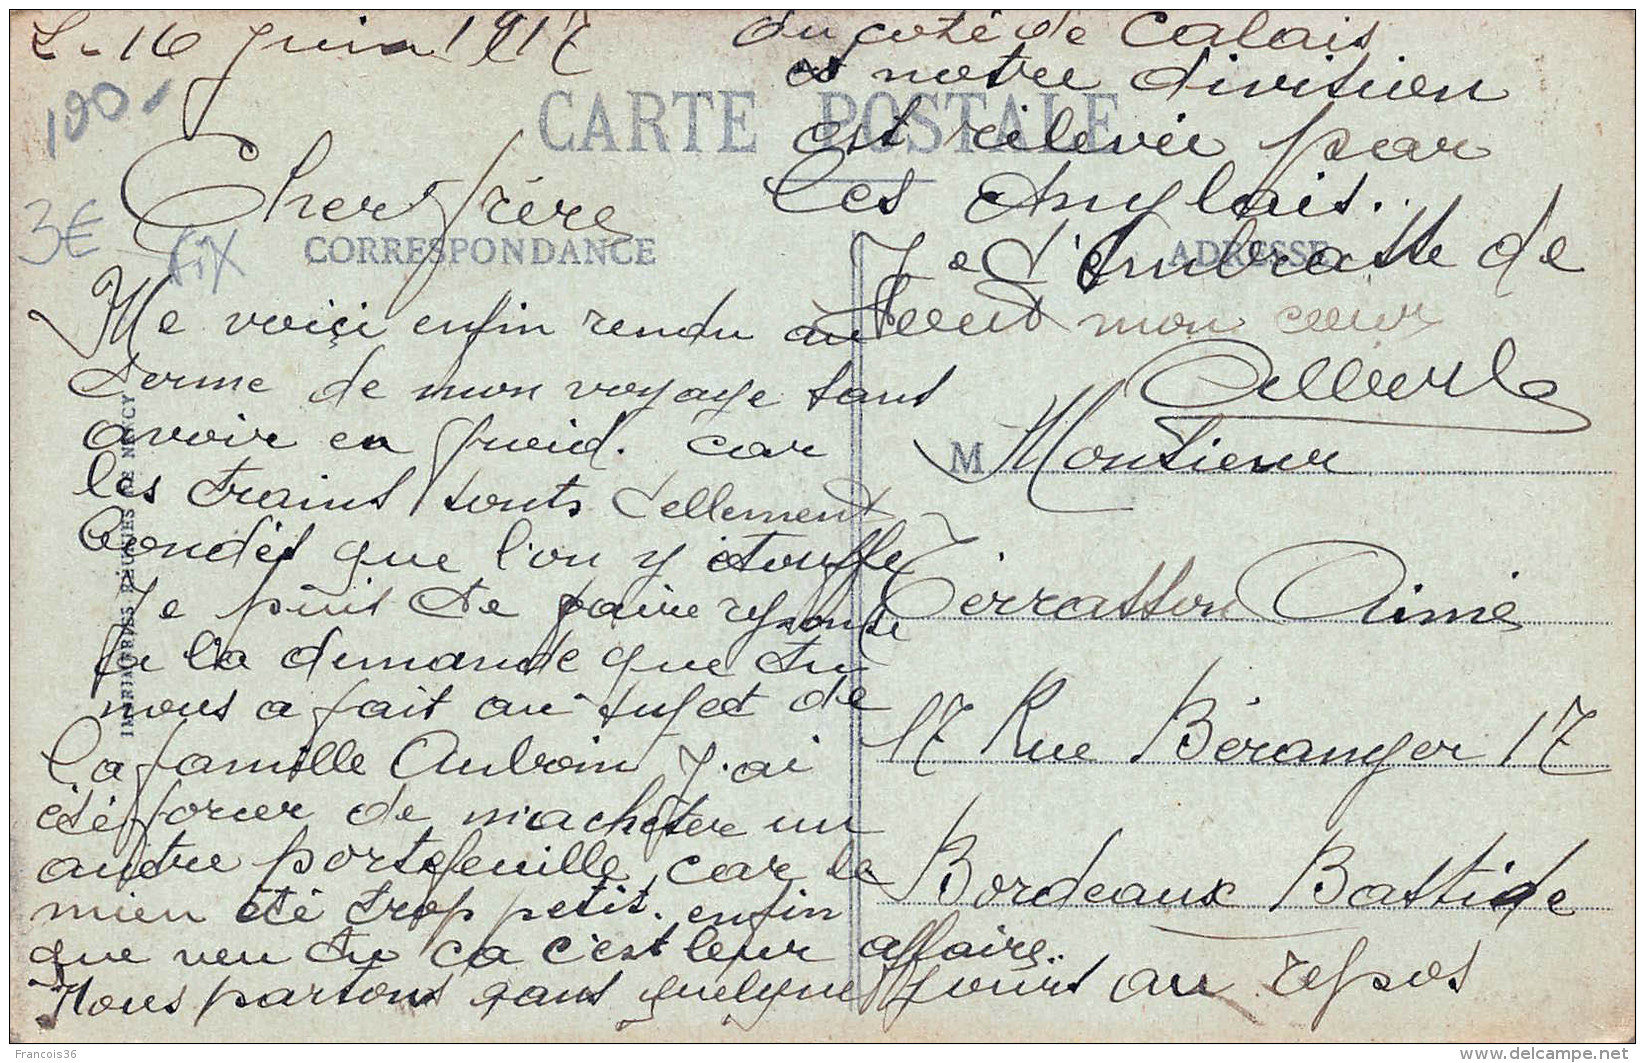 L - 16 Juin 1917
100.
3€
fix
CARTE POSTALE
CORRESPONDANCE
ADRESSE
Cher frère
Me voiçi enfin rendu au
terme de mon voyage sans
avoir eu froid. car
les trains sonts tellement
bondés que l'on y étouffe
Je puis te faire reponse
a la demande que tu
nous a fait au sujet de
la famille Auboin J'ai
été forcer de m'acheter un
autre portefeuille car le
mien été trop petit. enfin
que veu tu ca c'est leur affaire..
Nous partons dans quelque jours au repos
du coté de Calais
et notre division
est rélevée par
les Anglais..
Je t'embrasse de
tout mon coeur
Albert
M Monsieur
Terrasson Aimé
17 Rue Béranger 17
Bordeaux Bastide
IMPRIMERIES REUNIES DE NANCY
Francois36
delcampe.net